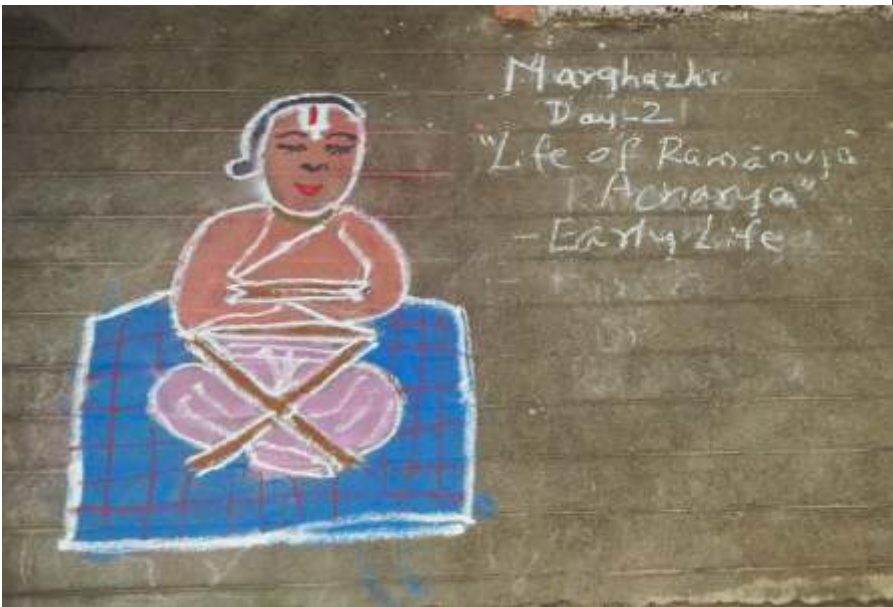 Marghazhi
Day-2
"Life of Ramānujā
Acharya"
- Early Life